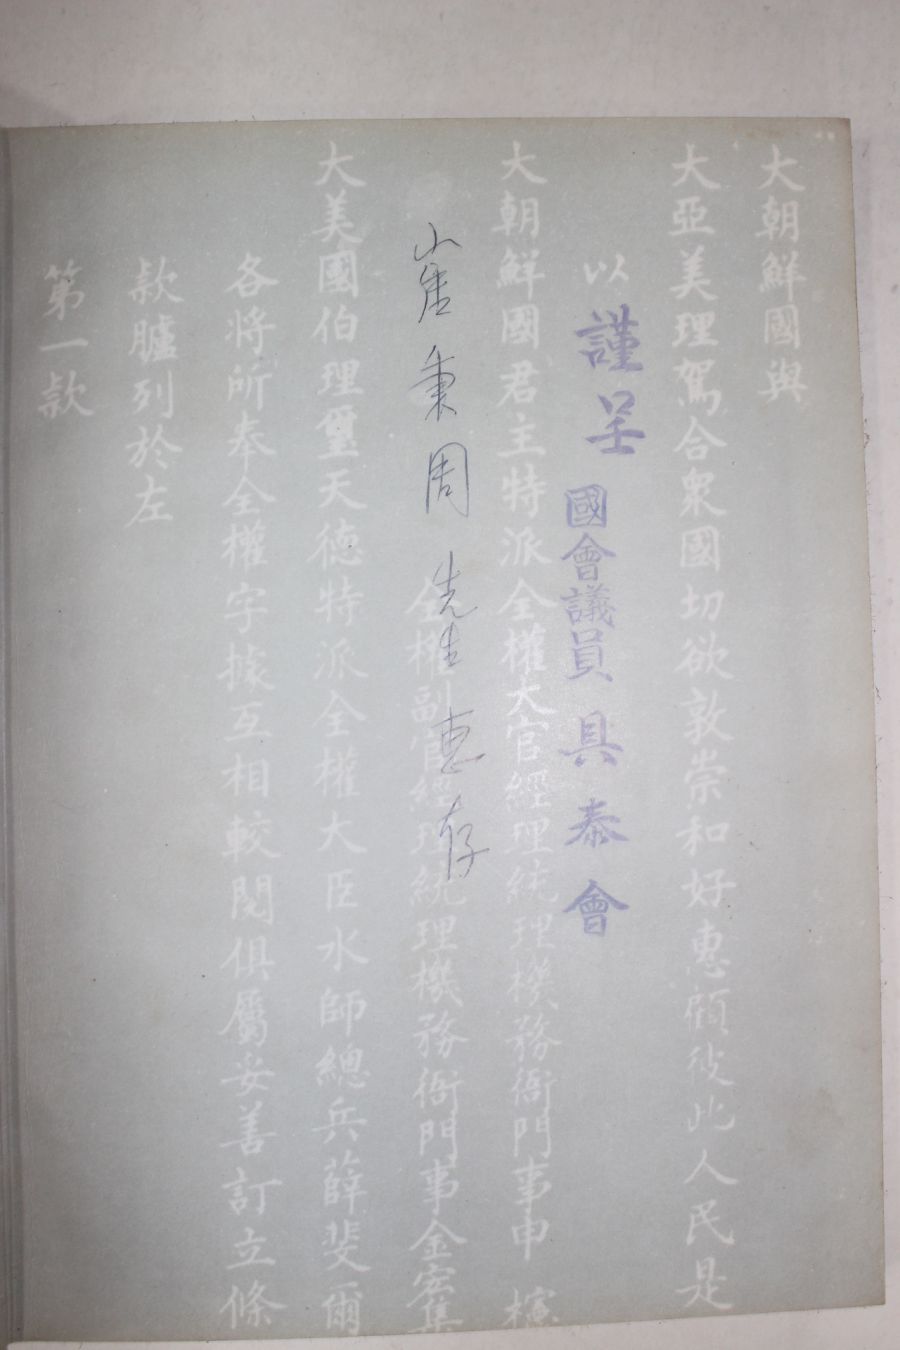 大朝鮮國與
大亞美理駕合衆國切欲敦崇和好惠顧彼此人民是
以
謹呈 國會議員 具泰會
大朝鮮國君主特派全權大官經理統理機務衙門事申 櫶
全權副官經理統理機務衙門事金宏集
崔秉周 先生 惠存
大美國伯理璽天德特派全權大臣水師總兵薛斐爾
各將所奉全權字據互相較閱俱屬妥善訂立條
款臚列於左
第一款